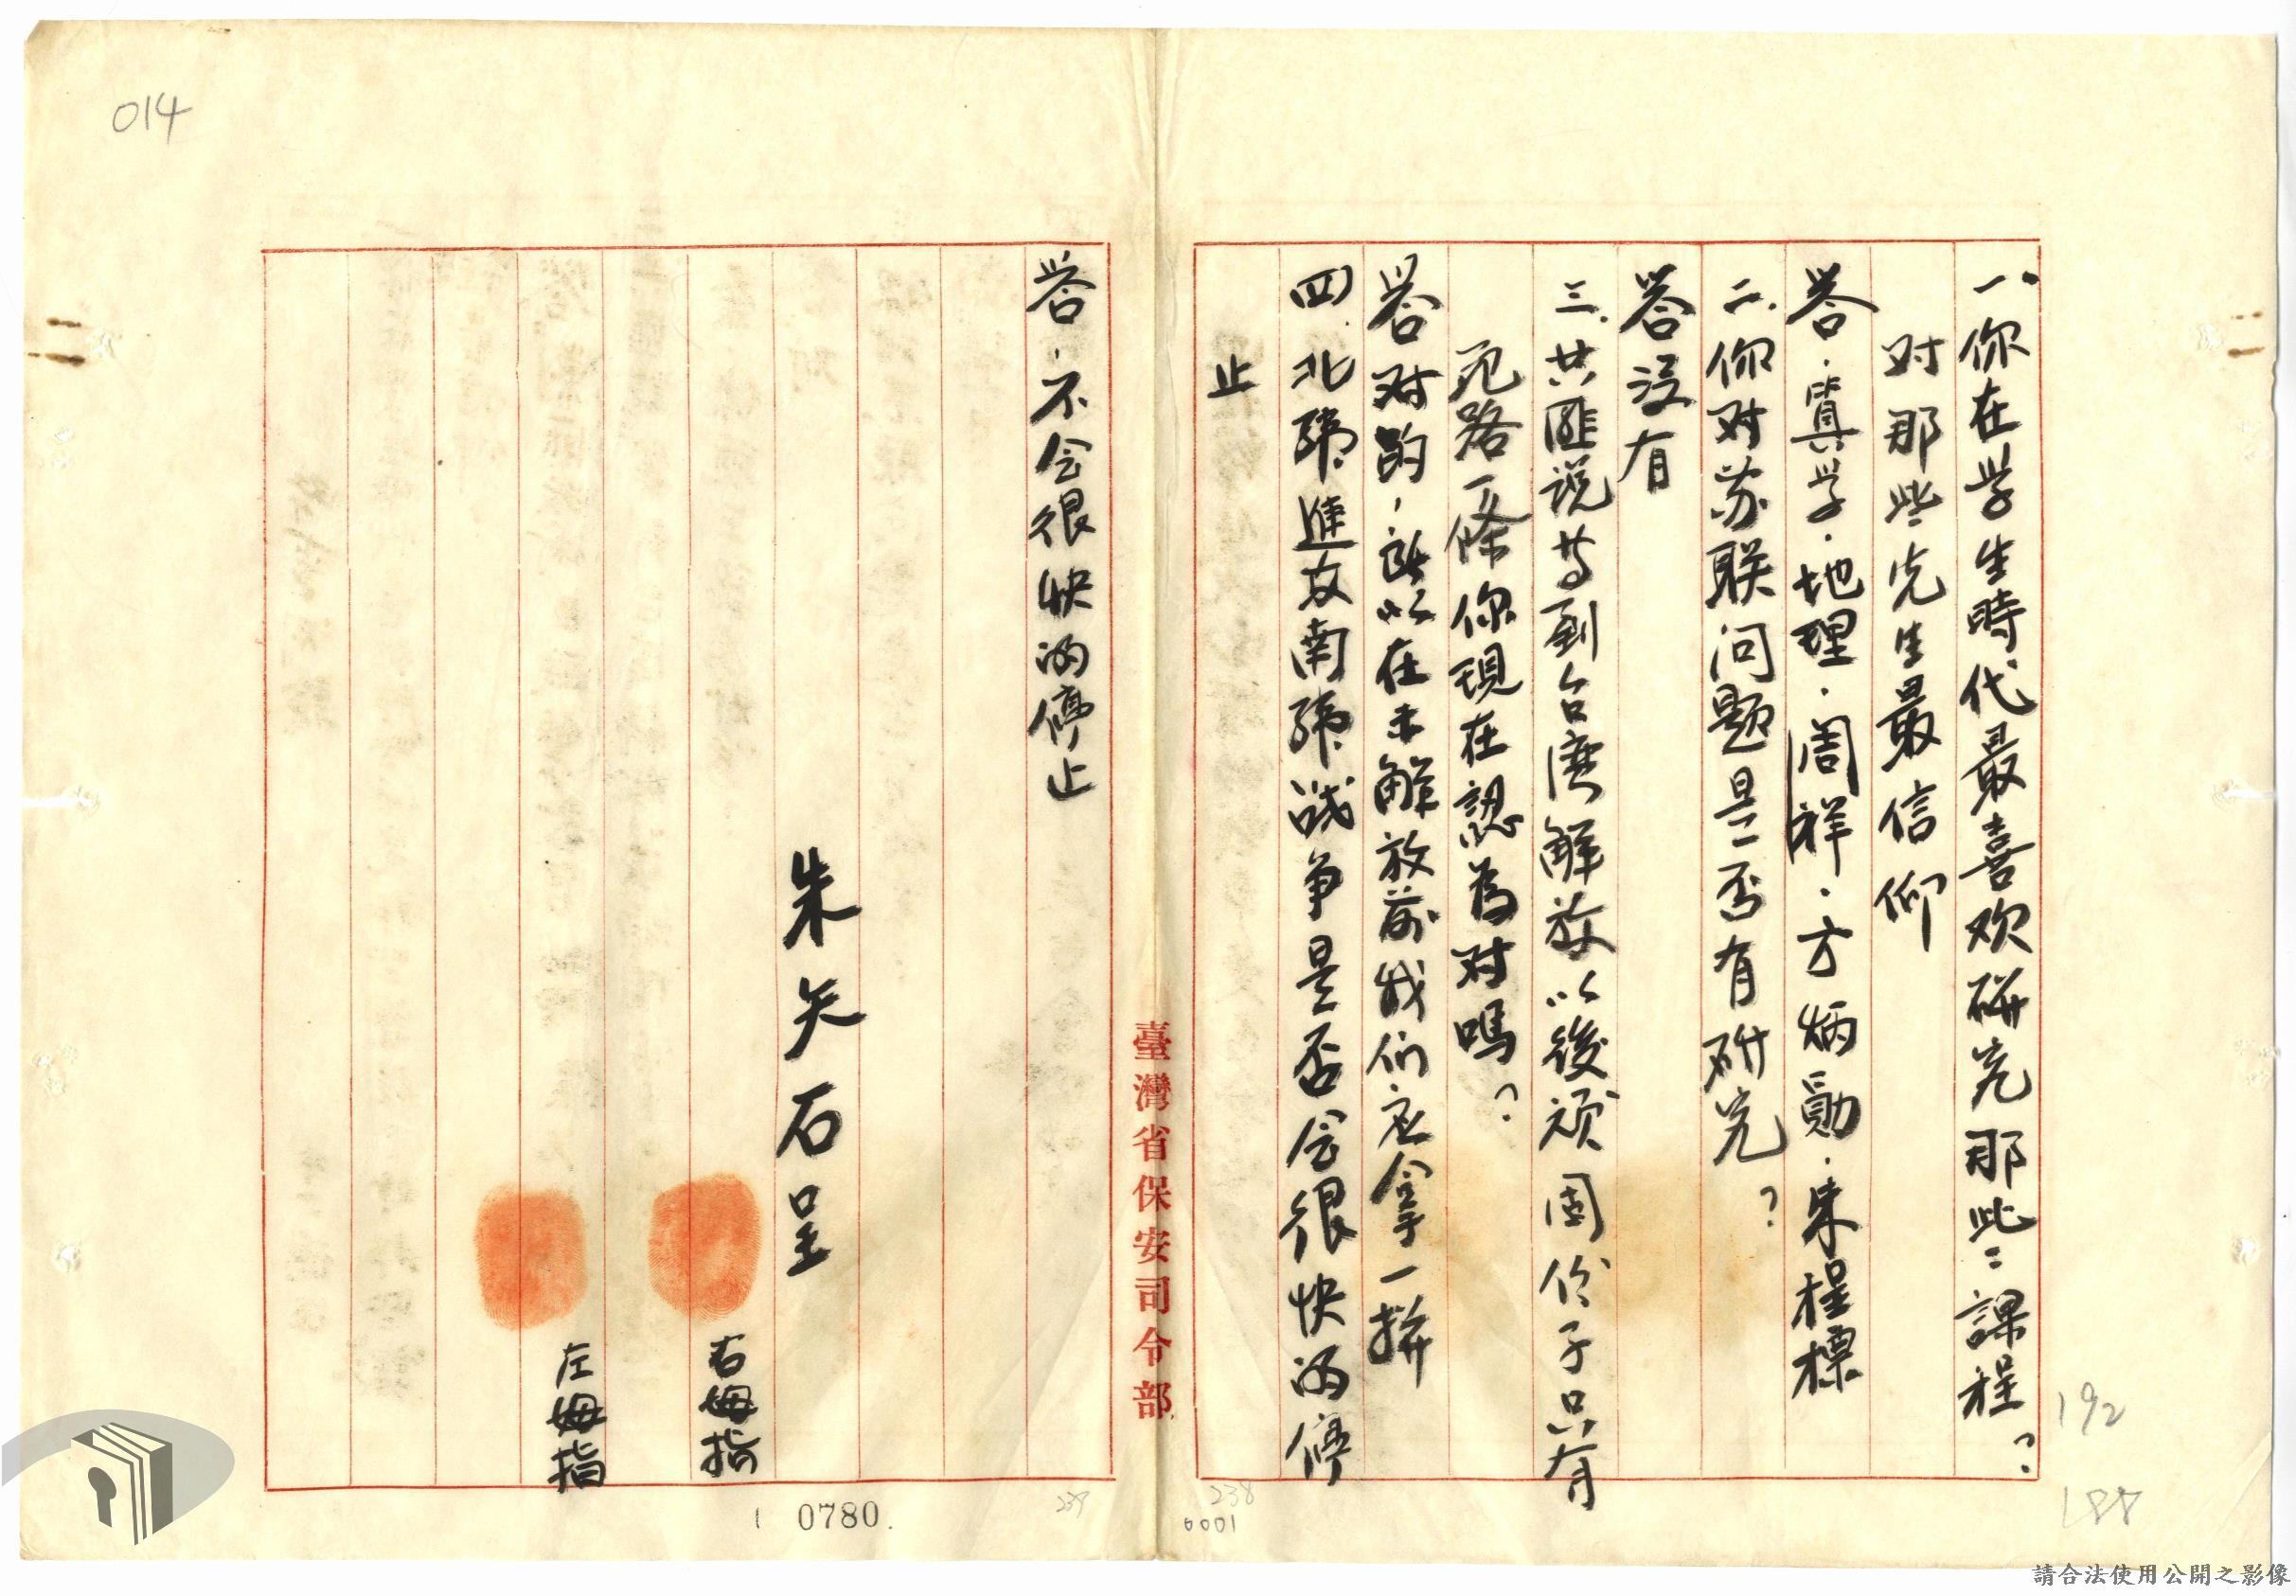 014
一、你在学生時代最喜欢研究那些課程？
对那些先生最信仰
答．真学．地理．周祥．方炳勛．朱程標
二．你对苏联问题是否有研究？
答没有
三．共匪説等到台湾解放以後顽固份子只有
死路一條你現在認為对嗎？
答对的，所以在未解放前我们应拿一拼
四．北韩進攻南韩战争是否会很快的停
止
臺灣省保安司令部
答．不会很快的停止
朱矢石呈
右姆指
左姆指
192
188
238
0001
239
0780.
請合法使用公開之影像